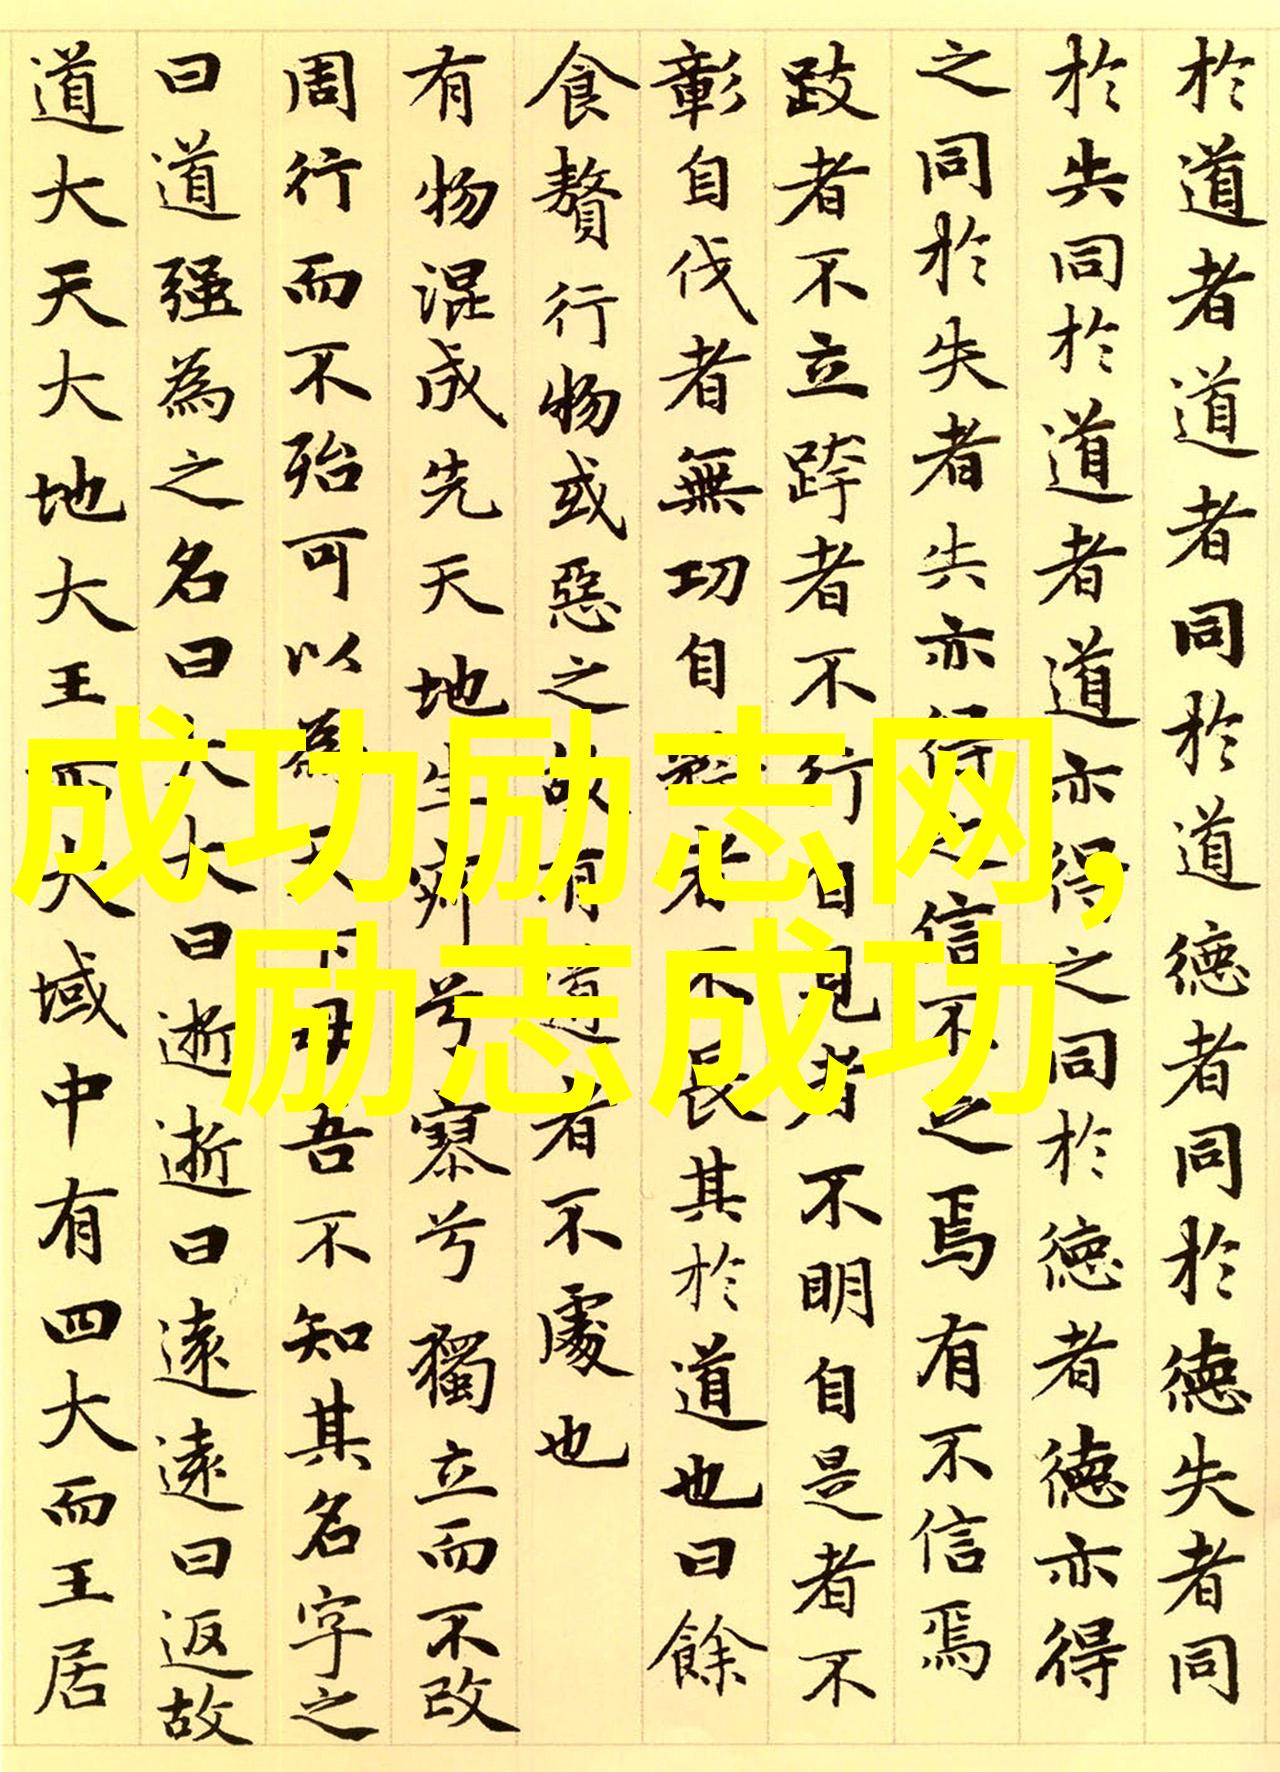 於道者道者同於道德者同於德失者同
於失同於道者道亦得之同於德者德亦得
之同於失者失亦得之信不足焉有不信焉
跂者不立跨者不行自見者不明自是者不
彰自伐者無功自矜者不長其於道也曰餘
食贅行物或惡之故有道者不處也
有物混成先天地生寂兮寥兮獨立而不改
周行而不殆可以為天下母吾不知其名字之
曰道强為之名曰大大曰逝逝曰遠遠曰返故
道大天大地大王大域中有四大而王居
成功励志网,
励志成功